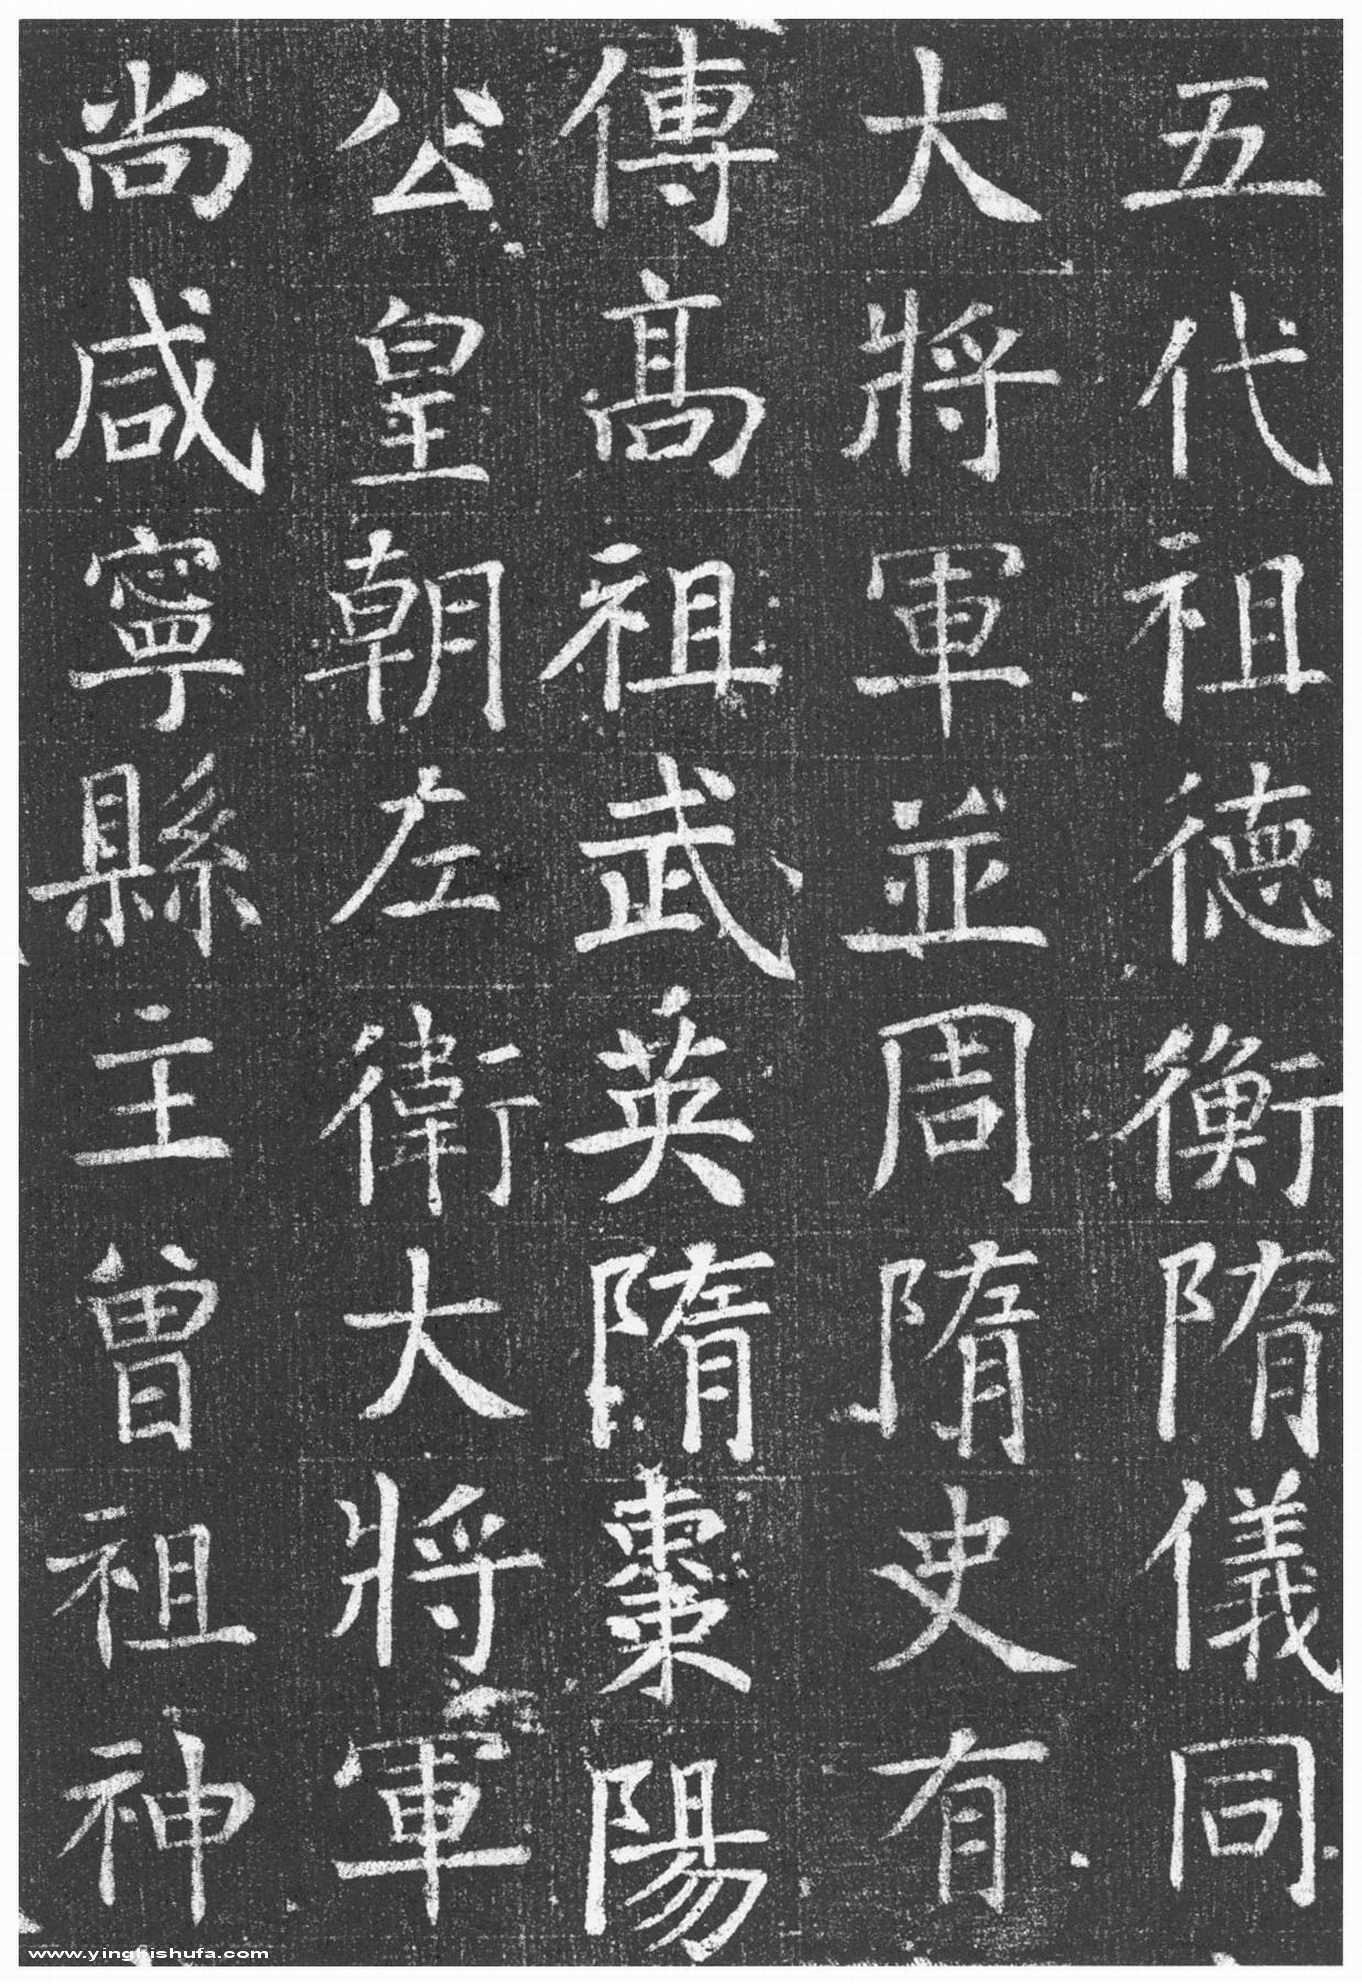 五代祖德衡隋儀同
大將軍並周隋史有
傳高祖武英隋棗陽
公皇朝左衛大將軍
尚咸寧縣主曾祖神
www.yingbishufa.com